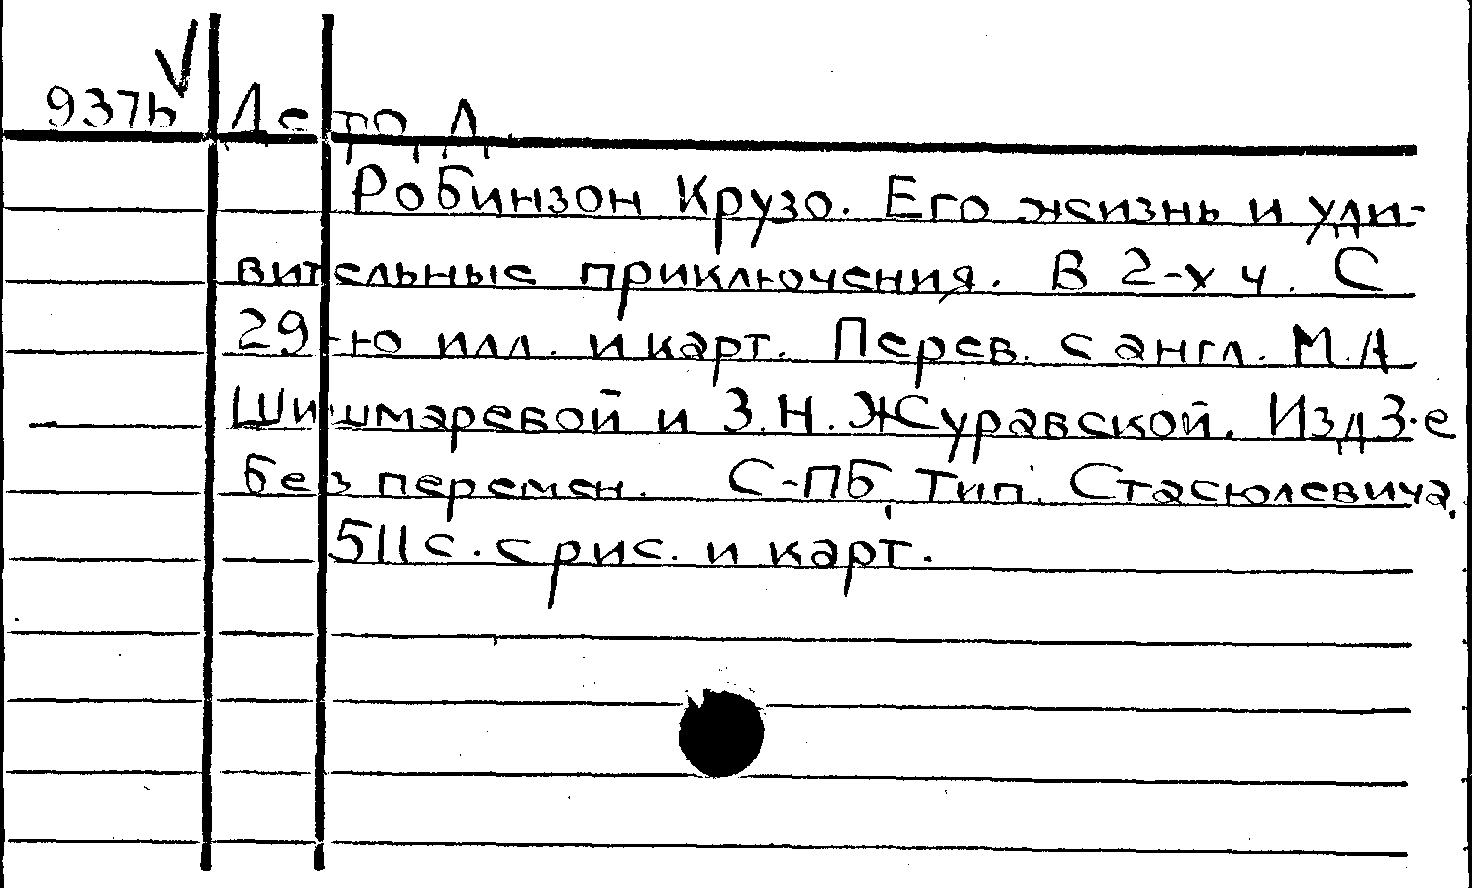 937b Дефо, Д.
Робинзон Крузо. Его жизнь и уди-
вительные приключения. В 2-х ч. С
29-ю илл. и карт. Перев. с англ. М.А
Шишмаревой и З.Н. Журавской. Изд 3-е
без перемен. С-ПБ, Тип. Стасюлевича,
511 с. с рис. и карт.